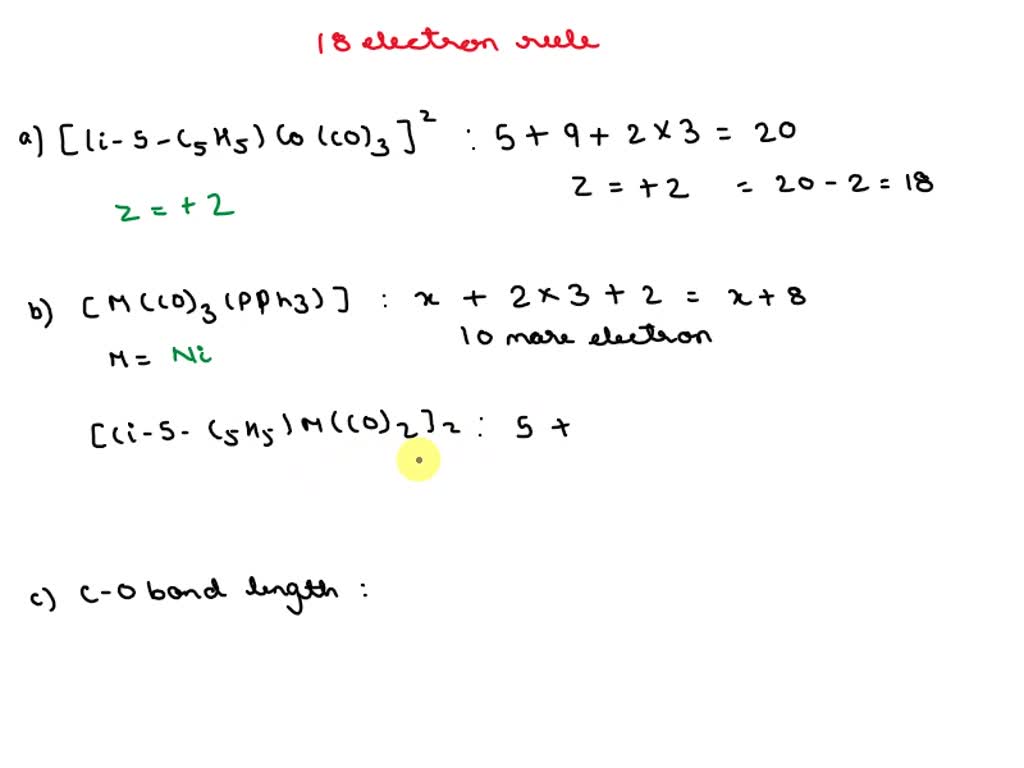 18 electron rule
a) [(i-5-C5H5) Co (CO)3]^2 : 5 + 9 + 2 × 3 = 20
z = +2
z = +2 = 20 - 2 = 18
b) [M(CO)3(PPh3)] : x + 2 × 3 + 2 = x + 8
10 more electron
M = Ni
[(i-5- C5H5) M(CO)2]2 : 5 +
c) C-O bond length :